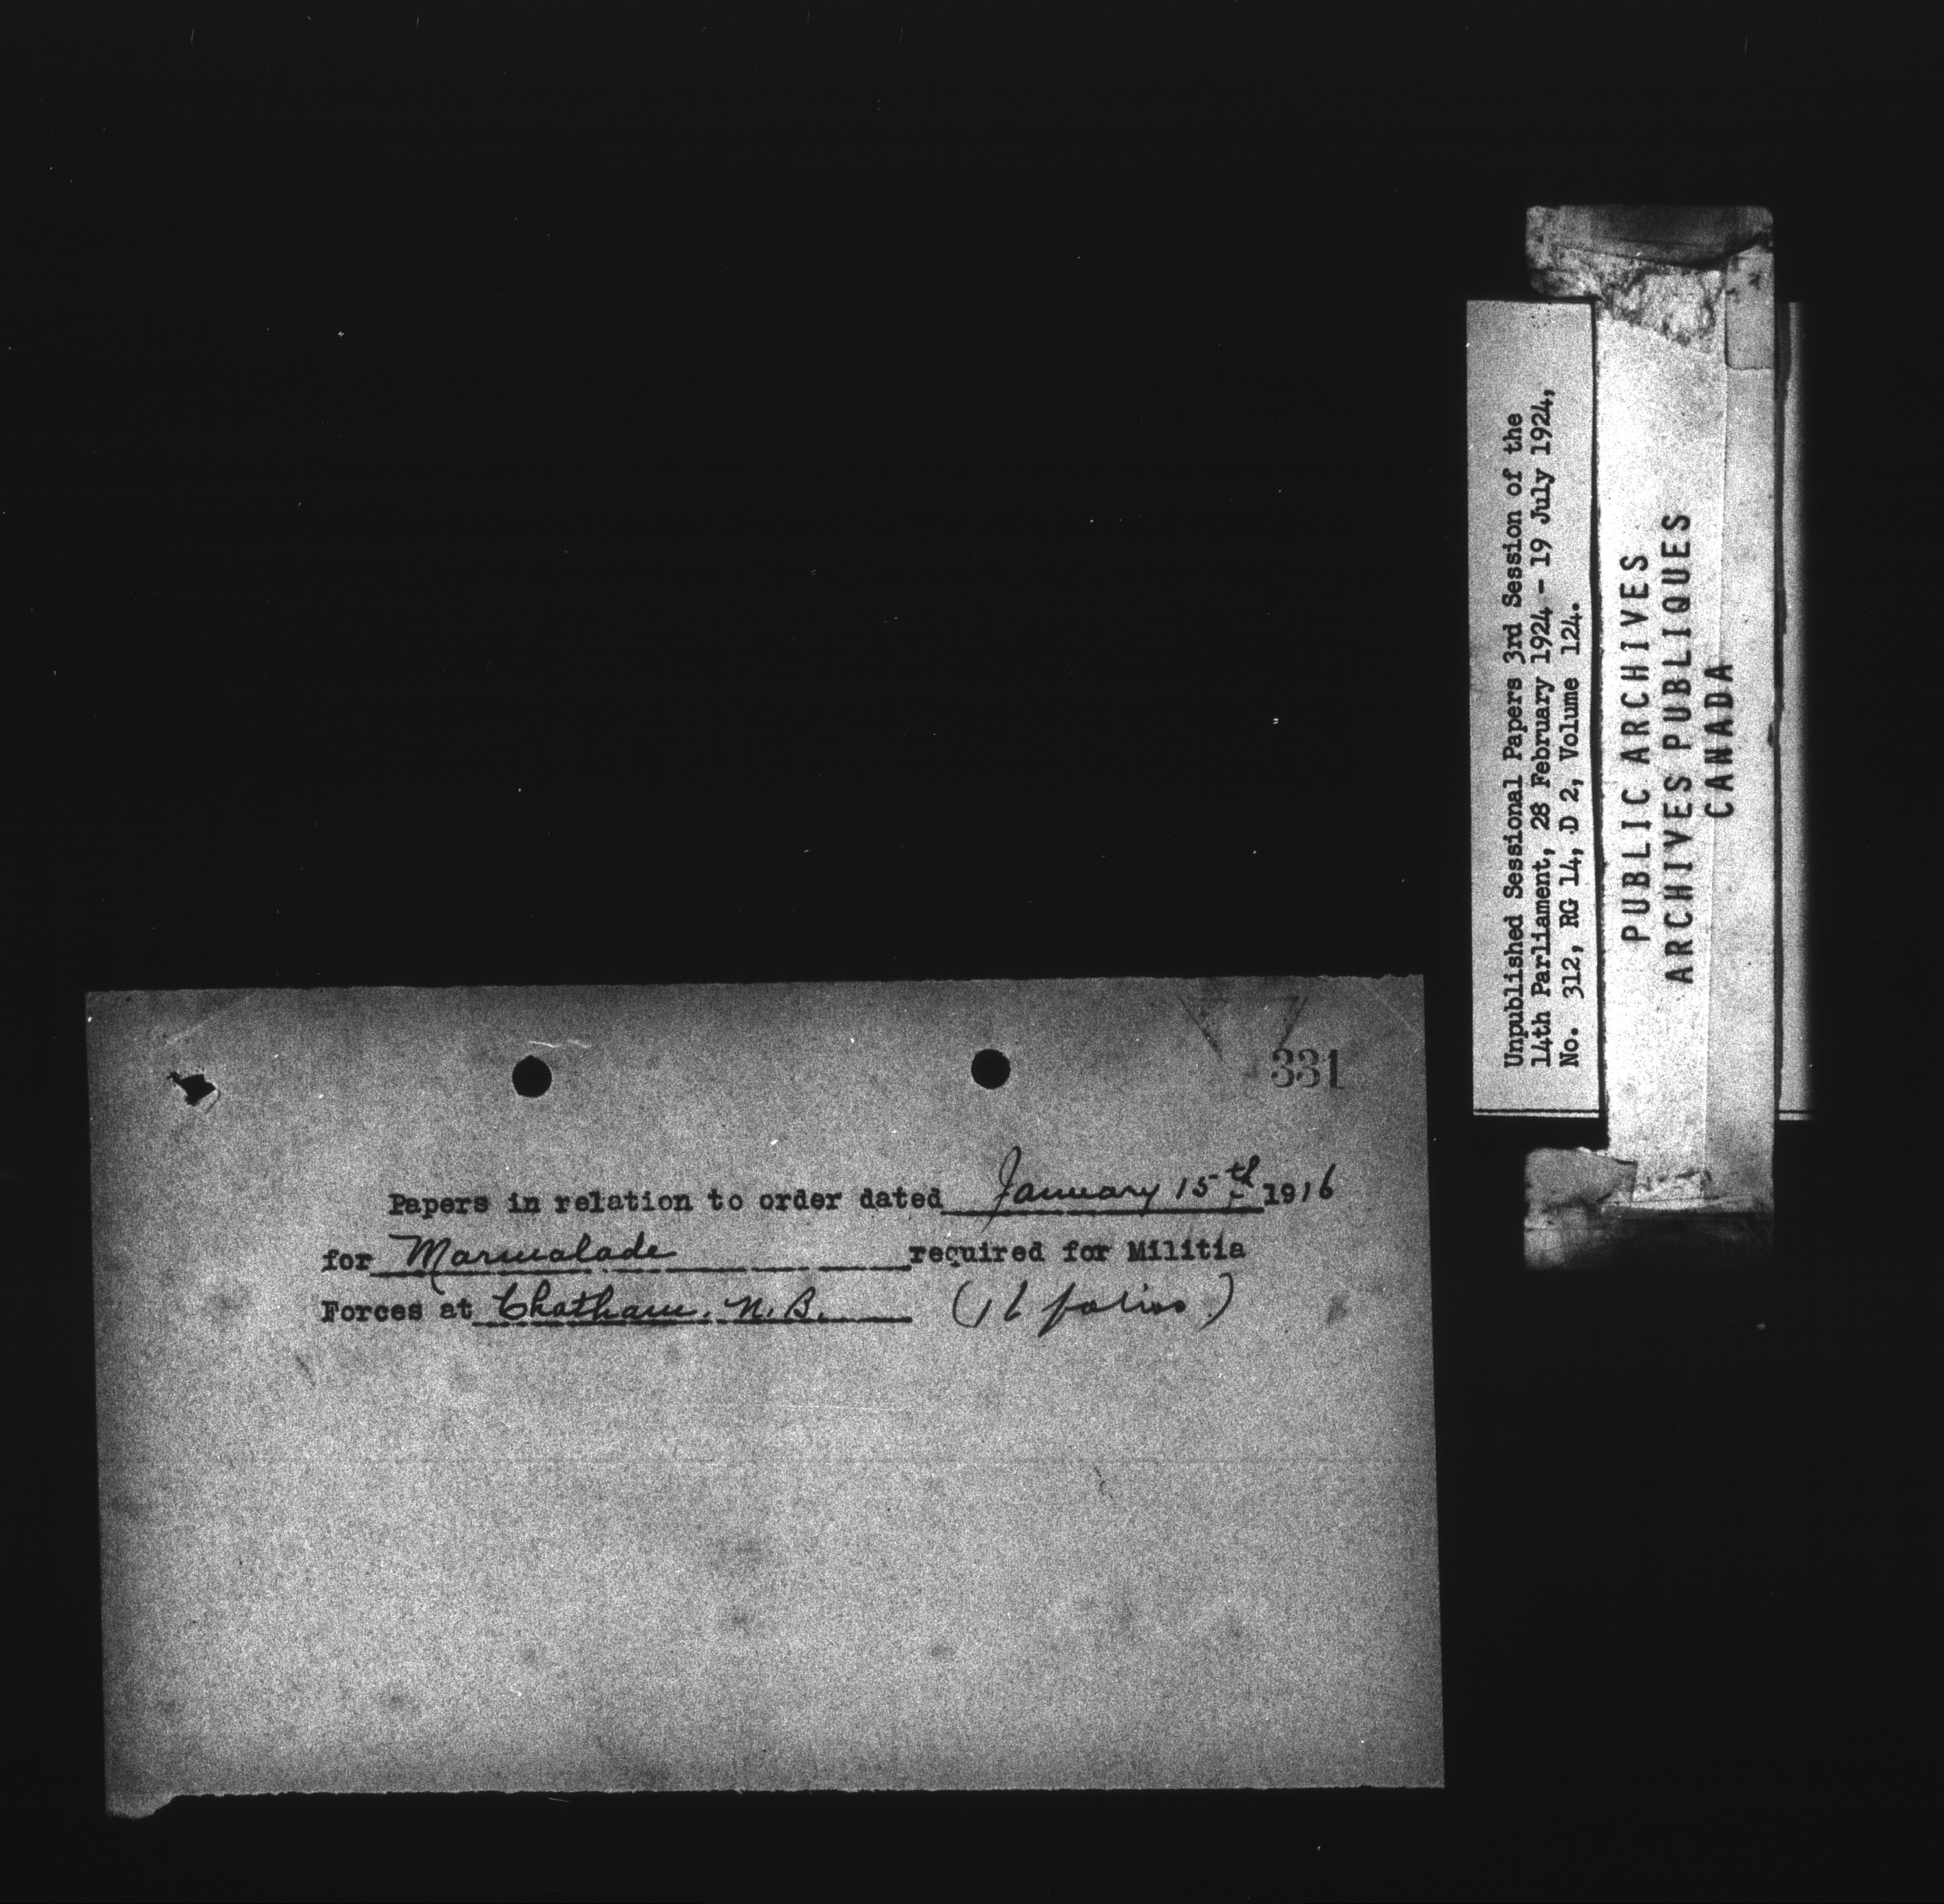 331
Papers in relation to order dated January 15th 1916
for Marmalade required for Militia
Forces at Chatham, N.B. (16 folios)
Unpublished Sessional Papers 3rd Session of the
14th Parliament, 28 February 1924 - 19 July 1924,
No. 312, RG 14, D 2, Volume 124.
PUBLIC ARCHIVES
ARCHIVES PUBLIQUES
CANADA